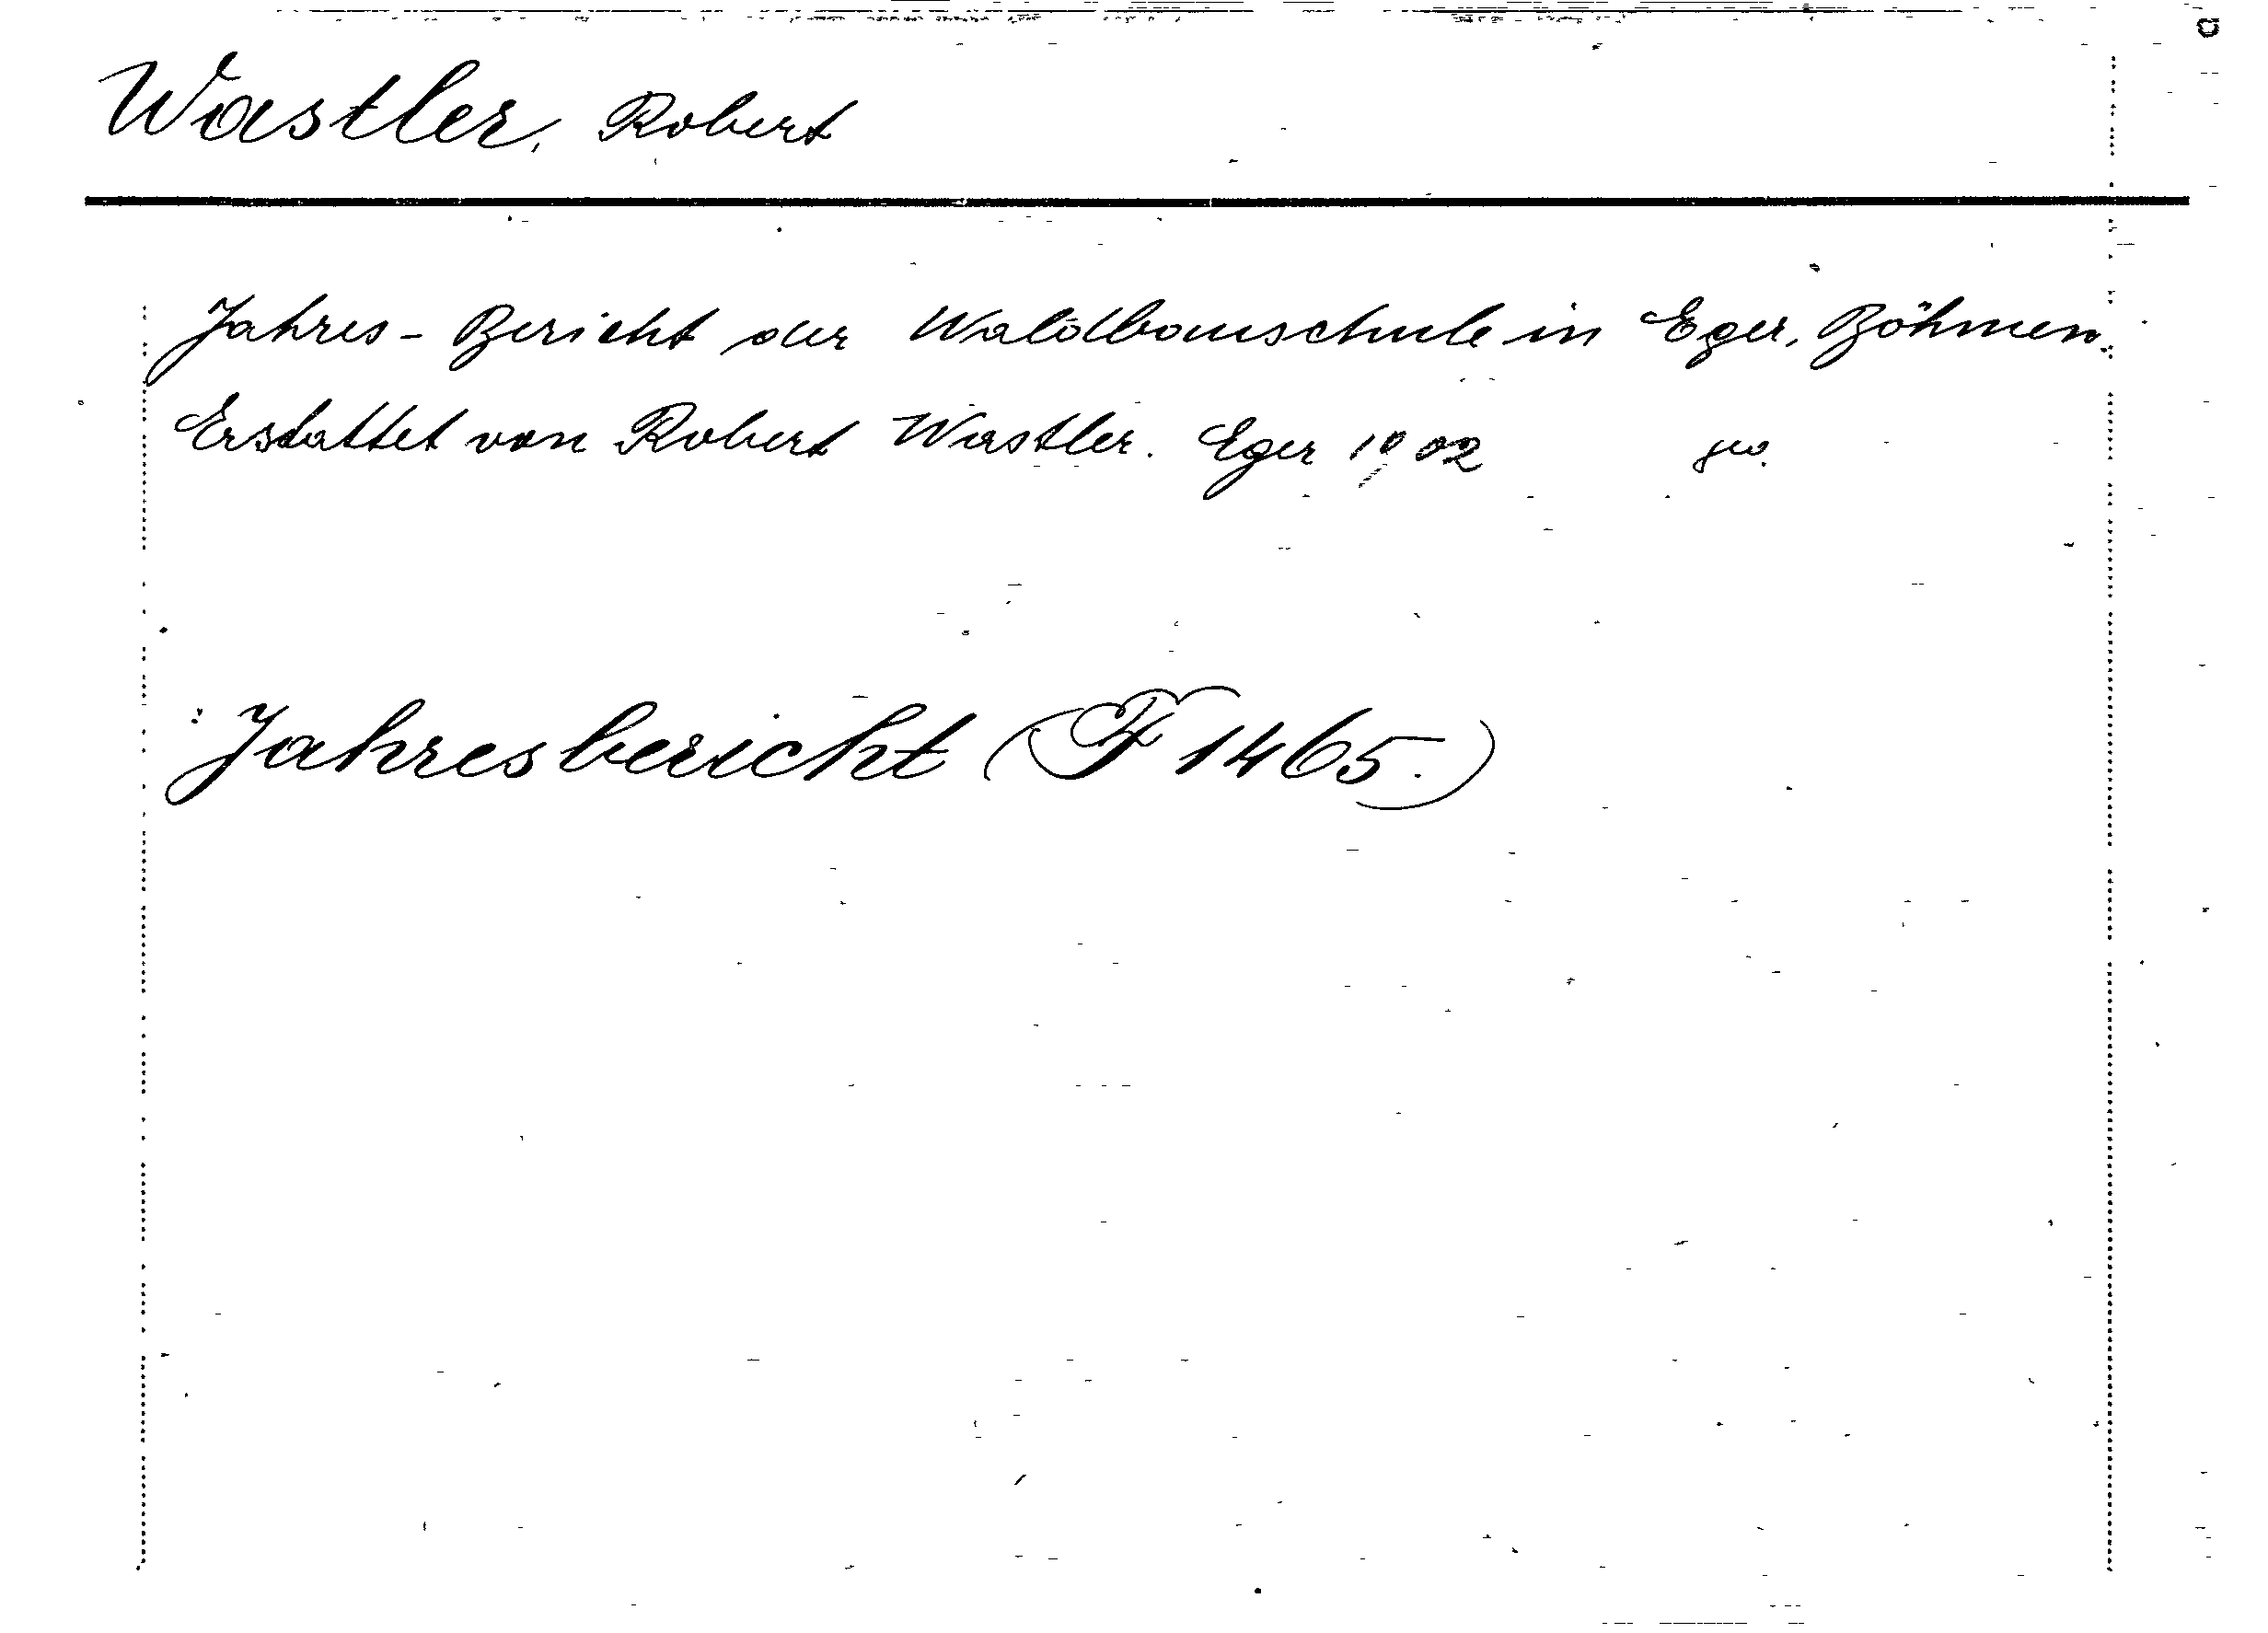 Wastler, Robert
Jahres-Bericht der Waldbauschule in Eger, Böhmen.
Erstattet von Robert Wastler. Eger 1902
Jahresbericht (F 1465.)